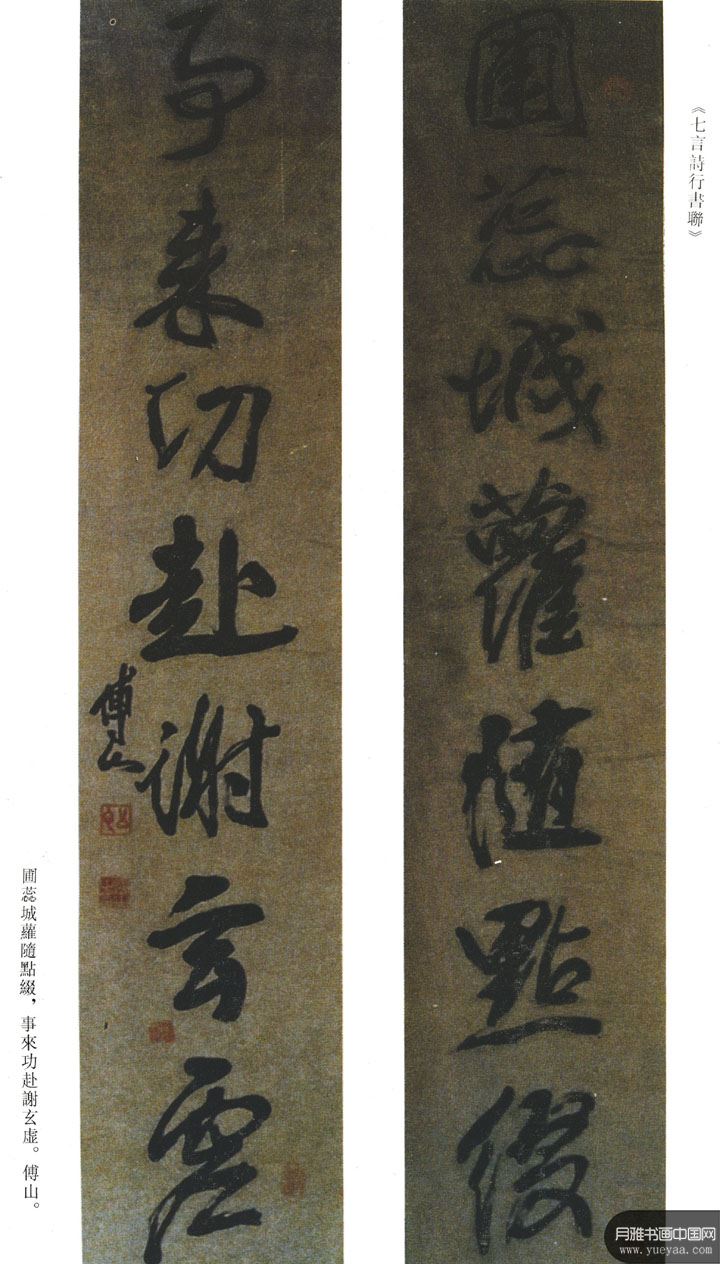 《七言詩行書聯》
圃蕊城蘿隨點綴
事來功赴謝玄虛
傅山
圃蕊城蘿隨點綴，事來功赴謝玄虚。傅山。
月雅书画中国网
www.yueyaa.com